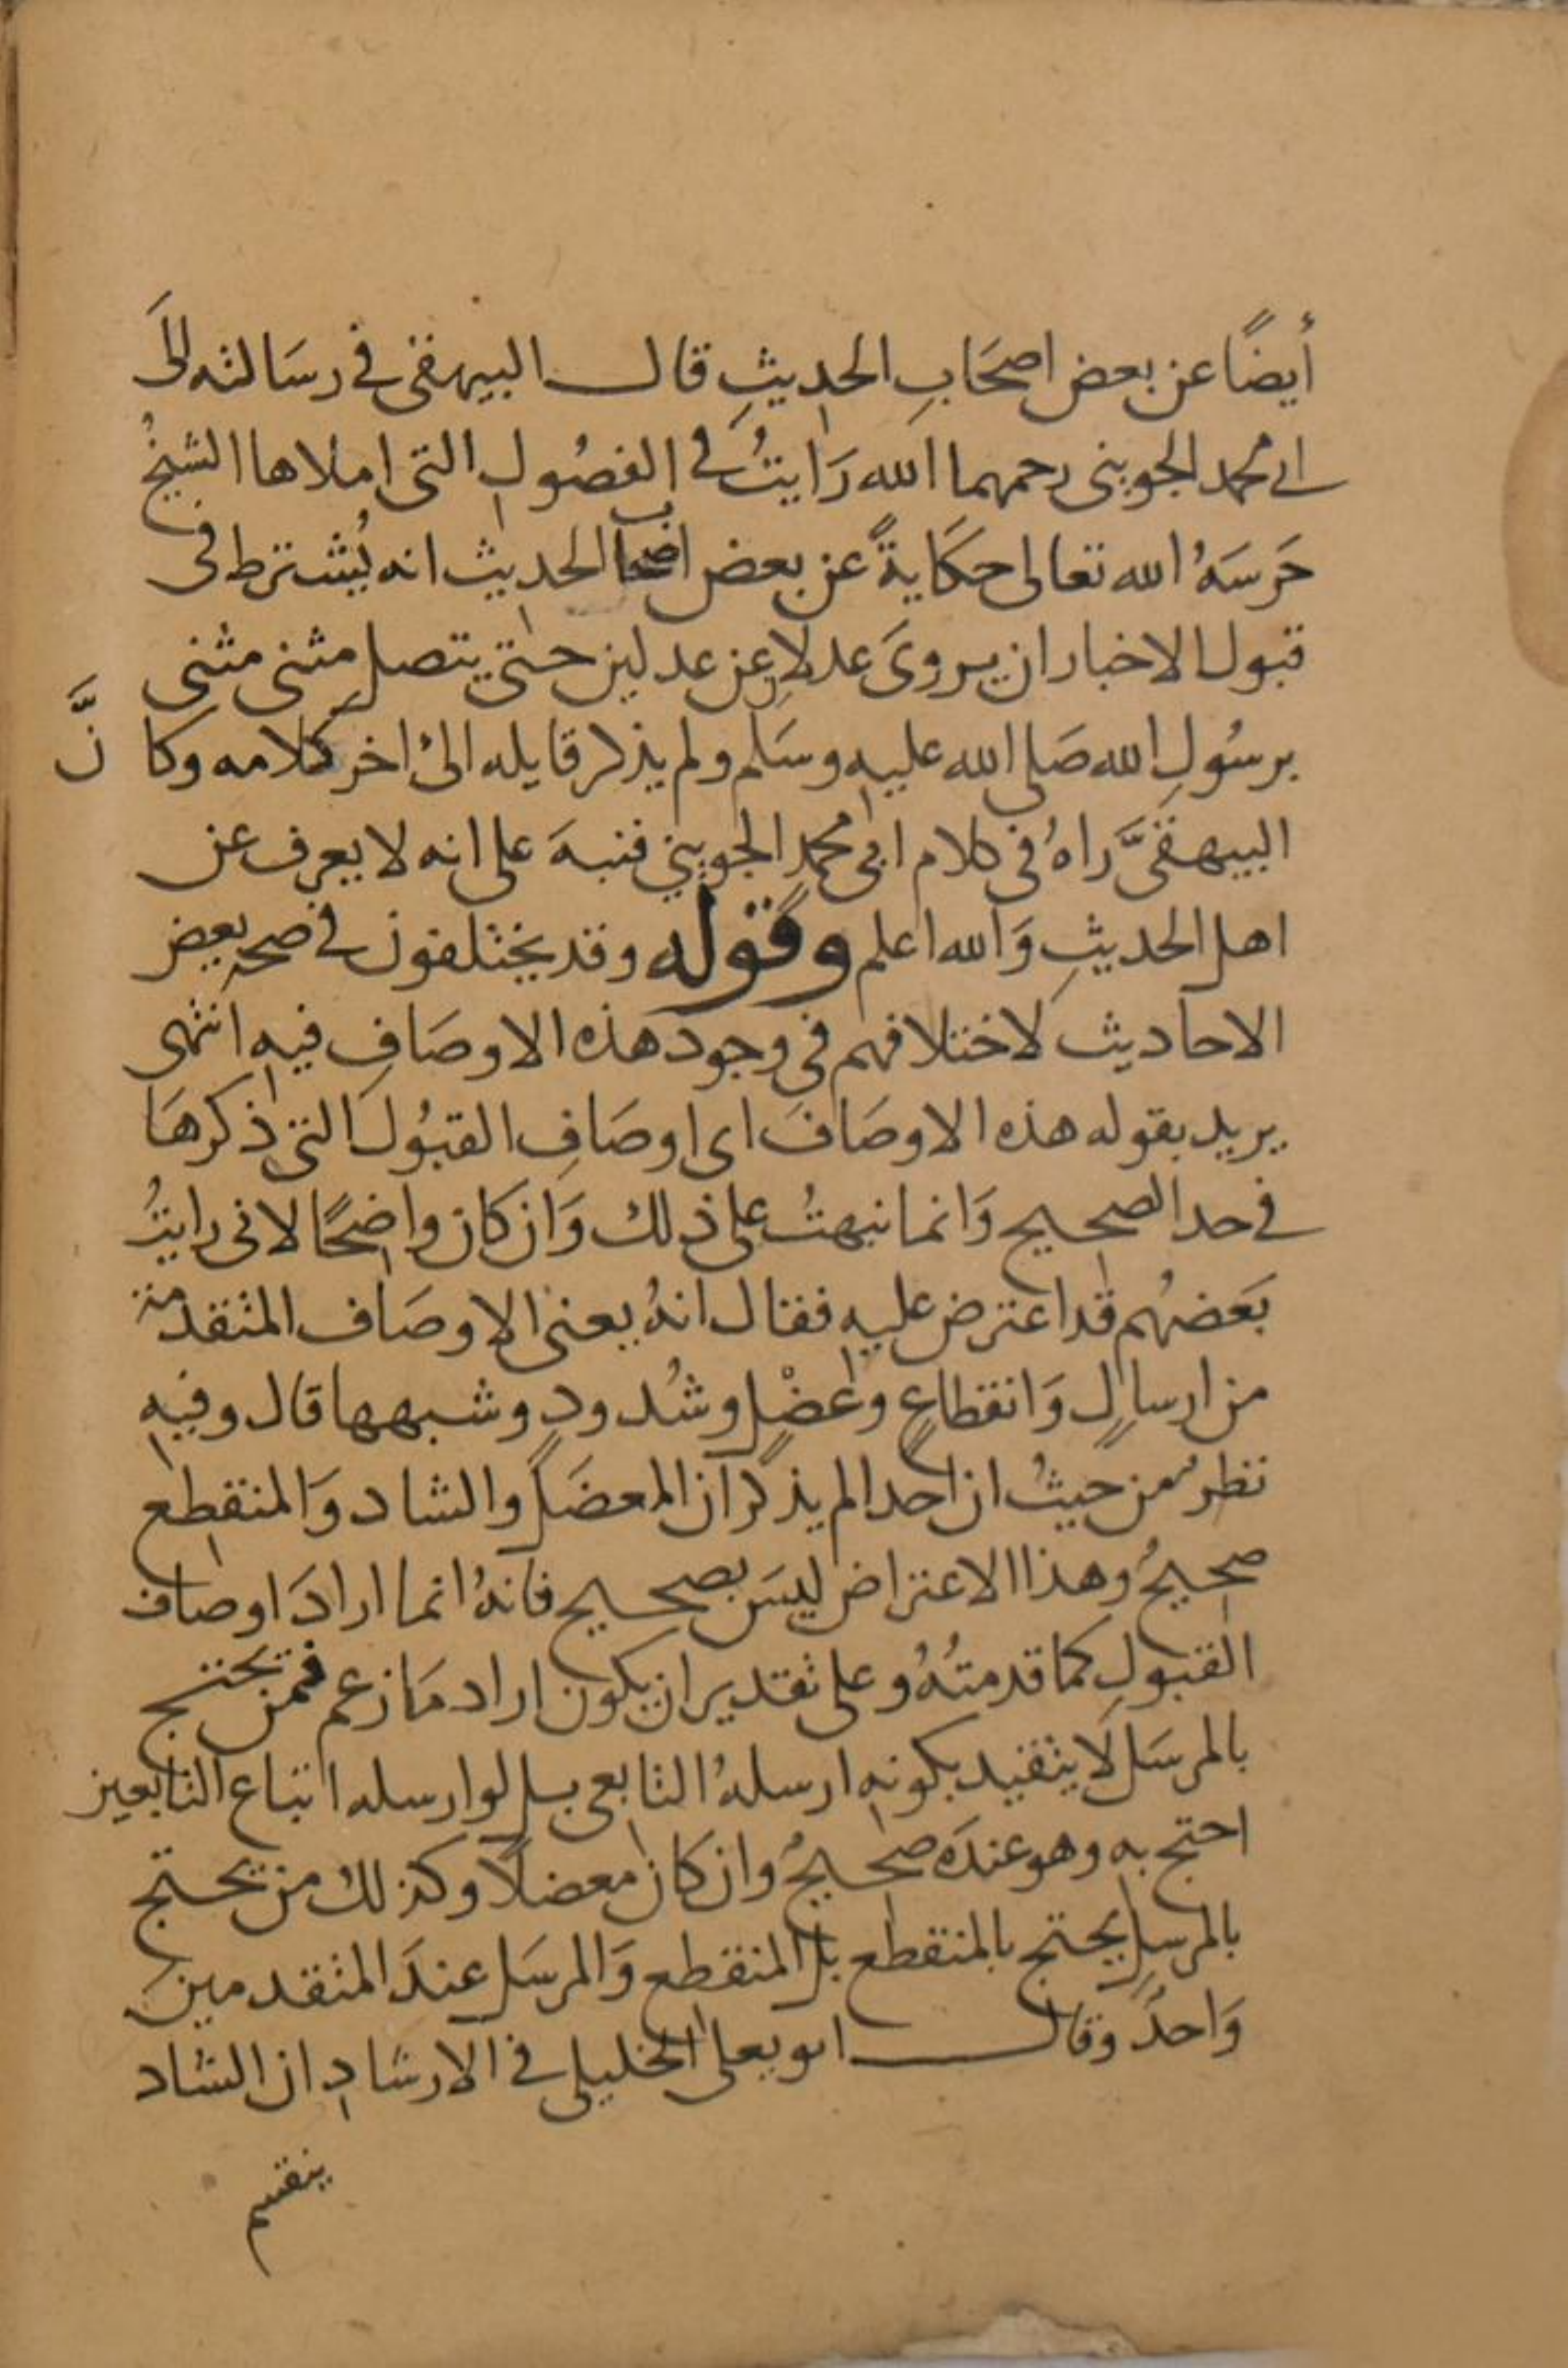 أيضًا عن بعض اصحَابِ الحديثِ قال البيهقى فى رسَالته الىَ
ابى محمد الجوينى رحمهما الله رَايتُ فى الفصُول التى املاها الشيخُ
حَرسَهُ الله تعالى حكَايةً عن بعض اصحاب الحديث انه يُشترط فى
قبول الاخبار ان يروىَ عدلان عن عدلين حتى يتصل مثنى مثنى
برسُولِ الله صَلى الله عليه وسَلم ولم يذكر قايله الى اخر كلامه وكانَّ
البيهقىَّ راهُ فى كلام ابى محمد الجوينى فنبهَ على انه لا يعرف عن
اهل الحديثِ وَالله اعلم وقوله وقد يختلفون فى صحه بعض
الاحاديث لاختلافهم فى وجود هذه الاوصَافِ فيه انتهى
يريد بقوله هذه الاوصَافَ اى اوصَافِ القبُول التى ذكرهَا
فى حد الصحيح وَانما نبهتُ على ذلك وَان كان واضحًا لانى رايتُ
بَعضهُم قد اعترض عليه فقال انهُ يعنى الاوصَاف المتقدمة
من ارسالٍ وَانقطاعٍ وعَضْلٍ وشُدودٍ وشبهها قال وفيه
نظرٌ من حيثُ ان احدا لم يذكر ان المعضَل والشاد وَالمنقطع
صحيحٌ وهذا الاعتراض ليسَ بصحيح فانهُ انما ارادَ اوصاف
القبولِ كما قدمتُهُ وعلى تقدير ان يكون اراد مَا زعم فمن يحتج
بالمرسَل لَا يتقيد بكونه ارسلهُ التابعى بل لو ارسله اتباع التابعين
احتج به وهو عندَه صحيحٌ وان كان معضلًا وكذلك من يحتج
بالمرسل يحتج بالمنقطع بل المنقطع وَالمرسَل عندَ المتقدمين
وَاحدٌ وقال ابو يعلى الخليلى فى الارشاد ان الشاد
ينقسم